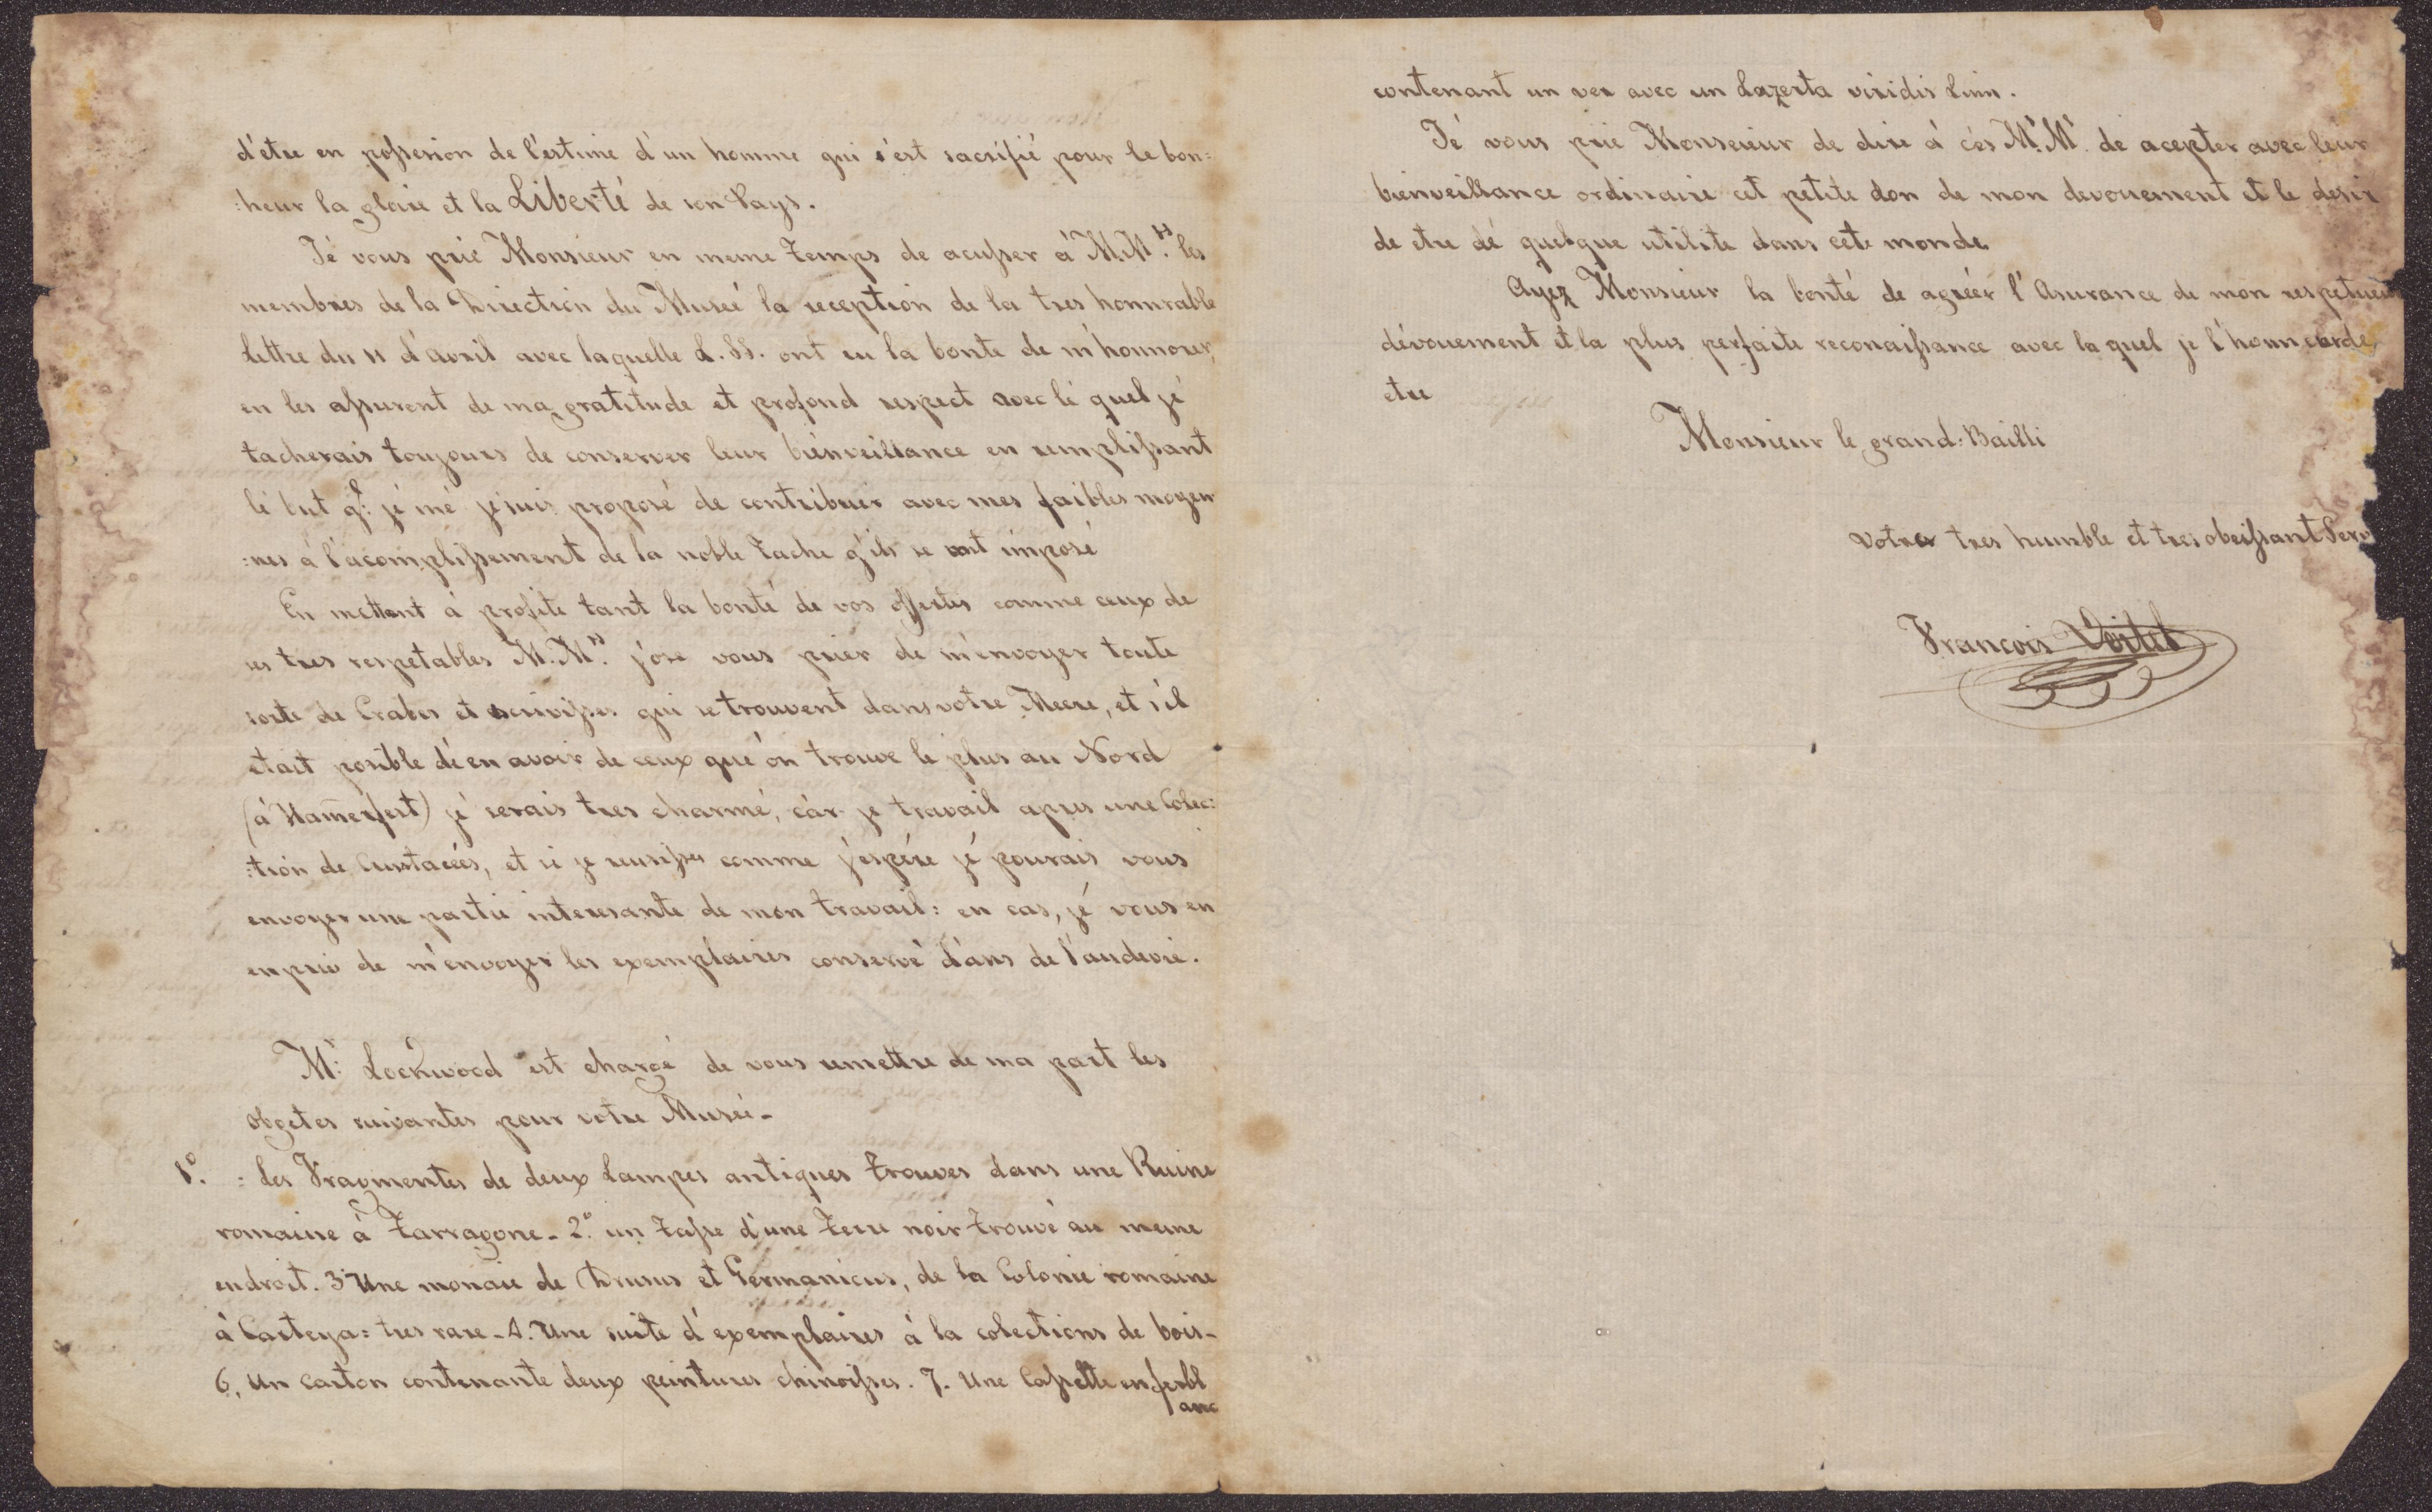 d'etre en possesion de l'estime d'un homme qui s'est sacrifié pour le bon=
=heur la gloire et la Liberté de son Pays.
Jé vous prié Monsieur en meme temps de acusser à M.M.rs les
membres de la Direction du Museé la reception de la tres honnrable
lettre du 11 d'avril avec laquelle L. SS. ont eu la bonte de m'honnorer,
en les assurent de ma gratitude et profond respect avec lé quel jé
tacherais toujours de conserver leur biénveillance en remplissant
lé but q.e jé mé jesuis proposé de contribuer avec mes faibles moyen
=nes à l'acomplissement de la noble tache q'ils se ont imposé
En mettent à profite tant la bonté de vos offertes comme ceux de
ses tres respetables M.M.rs j'ose vous prier de m'envoyer toute
sorte de Crabes et ecrivisses qui se trouvent dans votre Meere, et s'il
etait posible dé en avoir de ceux qué on trouve le plus au Nord
(à Hamerfest) jé serais tres charmé, càr je travail apres une Colec=
=tion de Crustaceés, et si je reusisses comme j'espére jé pourais vous
envoyer une partie interesante de mon travail: en cas, jé vous en
enprié de m'envoyer les exemplaires conservé dans de l'audevie.
M.r Lockwood est chargé de vous remettre de ma part les
objetes suivantes pour votre Museé -
1.o = les Fragmentes de deux Lampes antiques trouves dans une Ruine
romaine à Tarragone - 2.o un tasse d'une terre noir trouvé au meme
endroit. 3 Une monaie de Drusus et Germanicus, de la Colonie romaine
à Carteya= tres rare - 4. Une suite d'exemplaires à la colections de bois -
6, Un carton contenante deux peintures chinoisses. 7. Une Cassette en ferbl
anc
contenant un ver avec un Lazerta viridis Linn.
Jé vous prié Monseieur de dire á cés M.rM.r de acepter avec leur
bienveillance ordinaire cet petite don de mon devouement et le desir
de etre dé quelque utilite dans cete monde.
Ayez Monsieur la bonté de agréer l'Asurance de mon respetueu
dévouement et la plus perfaite reconaissance avec la quel je l'honneurde
etre
Monsieur le grand=Bailli
Votre tres humble et tres obeissant Serv
Francois Voitel